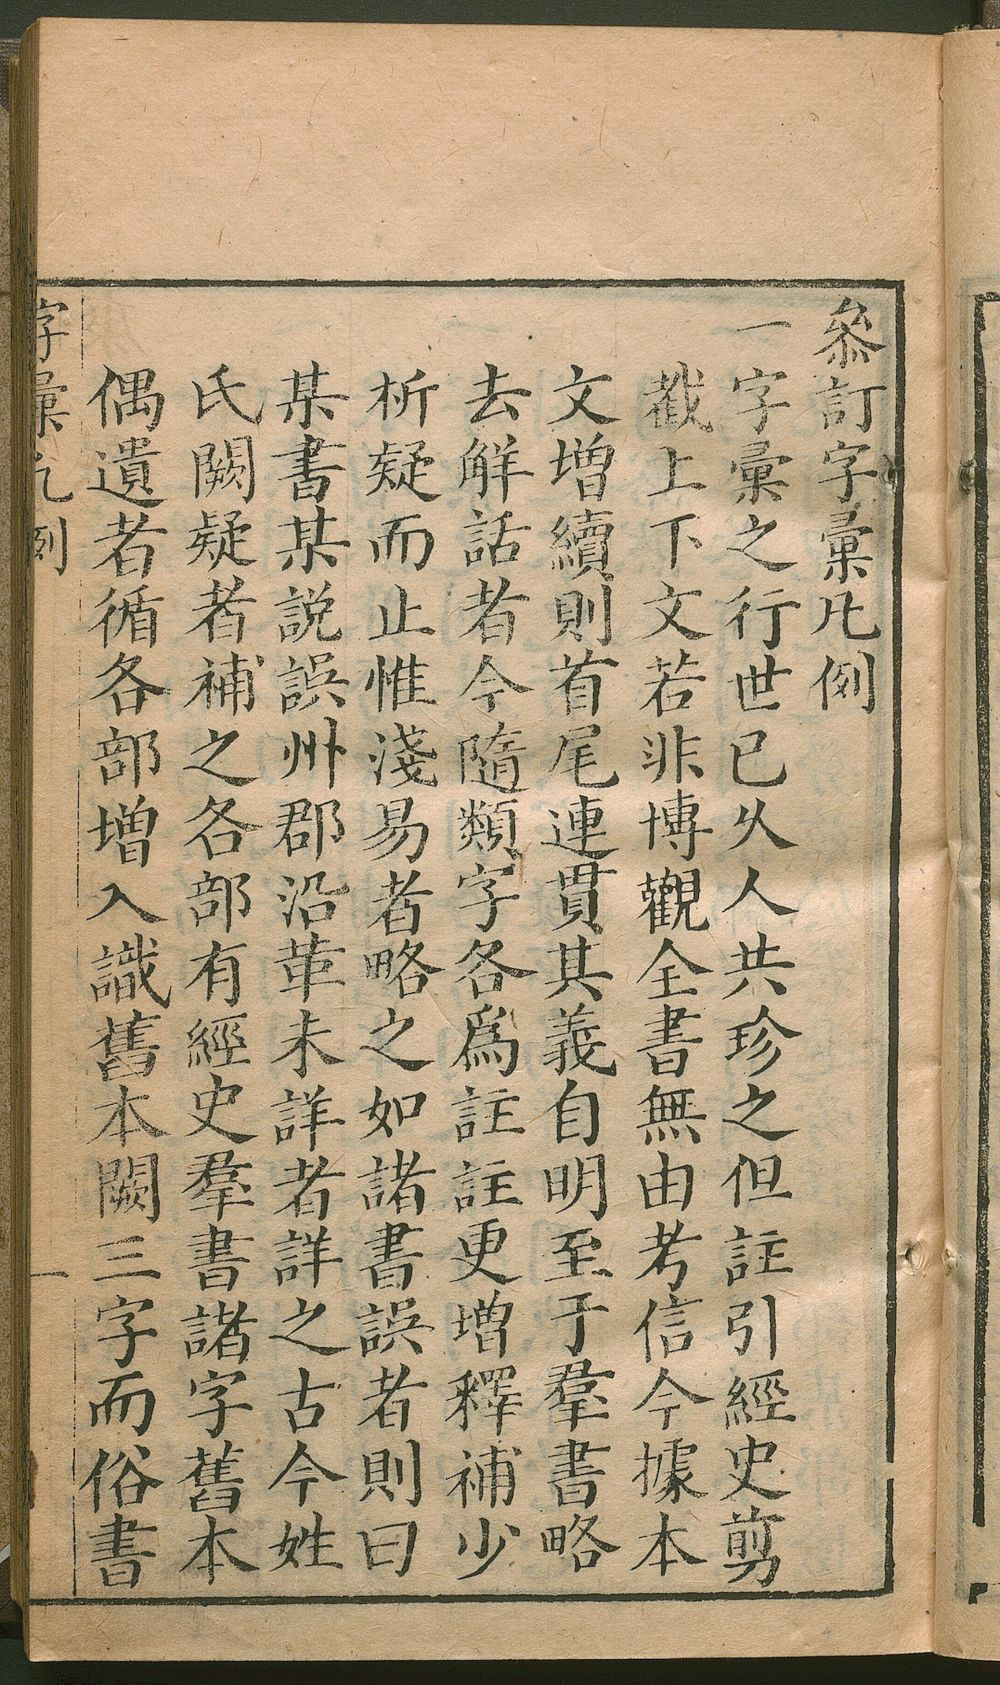 叅訂字彙凡例
一字彙之行世已久人共珍之但註引經史剪
截上下文若非博觀全書無由考信今據本
文增續則首尾連貫其義自明至于羣書略
去解話者今隨類字各爲註註更增釋補少
析疑而止惟淺易者略之如諸書誤者則曰
某書某説誤州郡沿革未詳者詳之古今姓
氏闕疑者補之各部有經史羣書諸字舊本
偶遺者循各部增入識舊本闕三字而俗書
字彙凡例 一